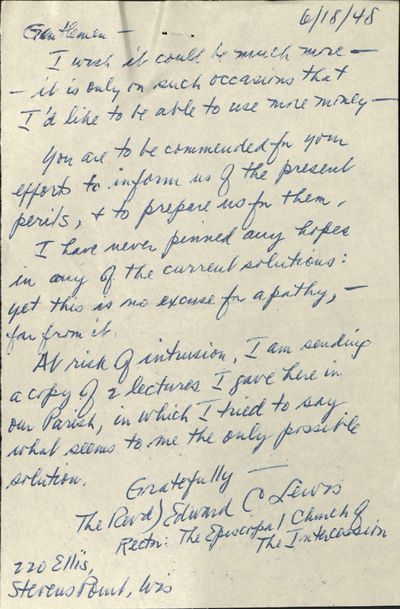 6/18/48
Gentlemen —
I wish it could be much more —
— it is only on such occasions that
I'd like to be able to use more money —
You are to be commended for your
efforts to inform us of the present
perils, & to prepare us for them.
I have never pinned any hopes
in any of the current solutions:
yet this is no excuse for apathy, —
far from it.
At risk of intrusion, I am sending
a copy of 2 lectures I gave here in
our Parish, in which I tried to say
what seems to me the only possible
solution.
Gratefully —
The Revd) Edward C Lewis
Rector: The Episcopal Church of
The Intercession
220 Ellis,
Stevens Point, Wis